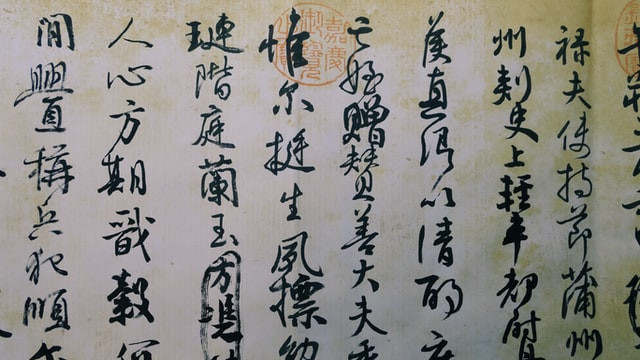 禄夫使持節蒲州
州刾史上輕車都尉
侯真卿以清酌庶
亡姪贈贊善大夫季
惟尔挺生夙標幼
璉階庭蘭玉方憑
人心方期戩榖何
間釁稱兵犯順